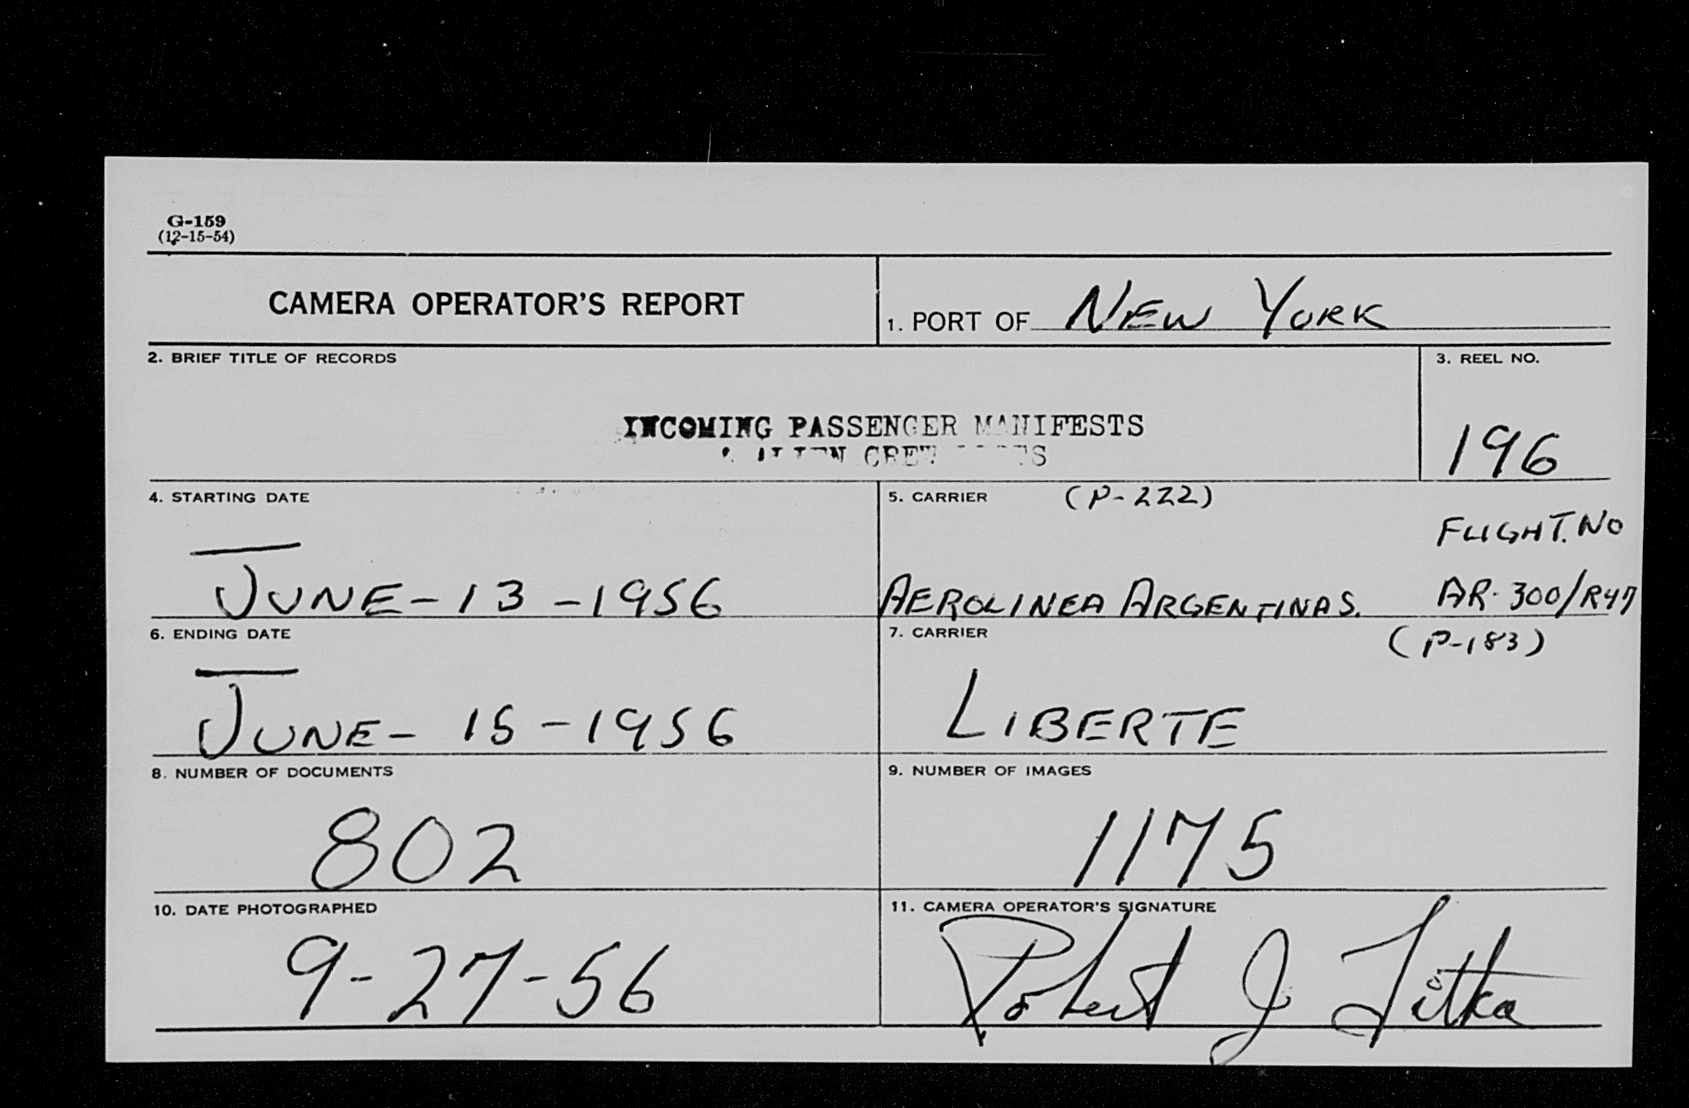 G-159
(12-15-54)
CAMERA OPERATOR'S REPORT
1. PORT OF NEW YORK
2. BRIEF TITLE OF RECORDS
3. REEL NO.
INCOMING PASSENGER MANIFESTS
CREW
196
4. STARTING DATE
5. CARRIER (P-222)
FLIGHT. NO
JUNE-13-1956
AEROLINEA ARGENTINAS. AR-300/R47
6. ENDING DATE
7. CARRIER (P-183)
JUNE-15-1956
LIBERTE
8. NUMBER OF DOCUMENTS
9. NUMBER OF IMAGES
802
1175
10. DATE PHOTOGRAPHED
11. CAMERA OPERATOR'S SIGNATURE
9-27-56
Robert J